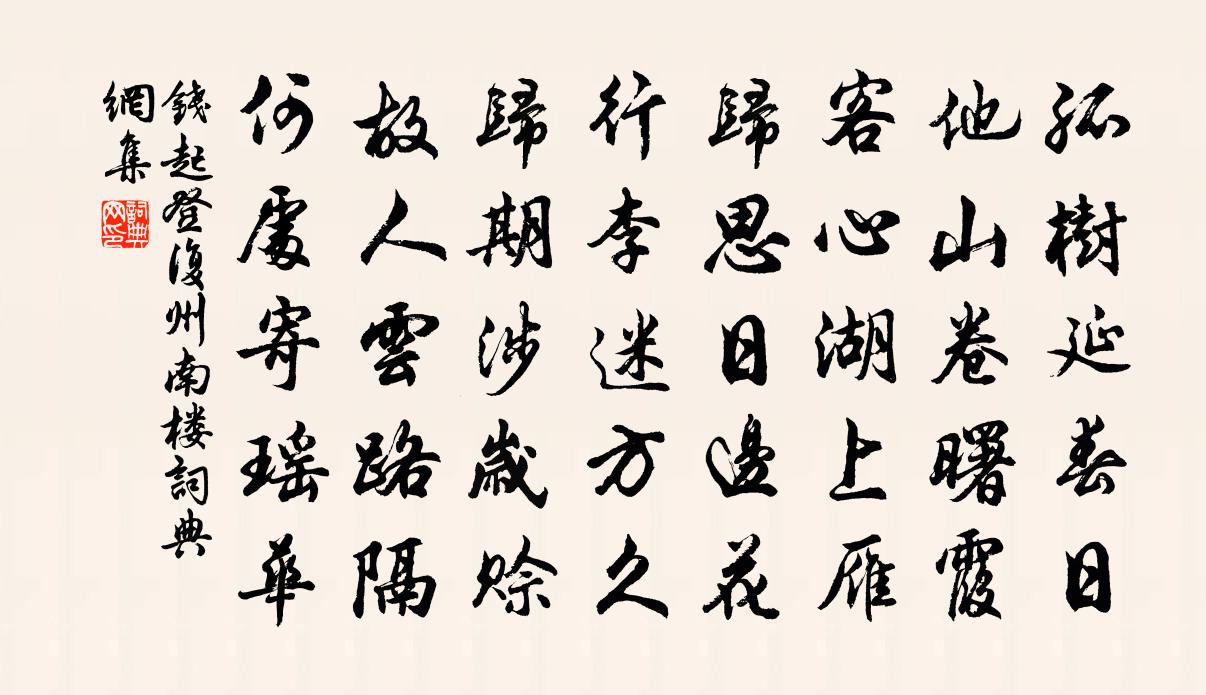 孤樹延春日
他山卷曙霞
客心湖上雁
歸思日邊花
行李迷方久
歸期涉歲賒
故人雲路隔
何處寄瑤華
錢起登復州南楼詞典
網集
詞典
网印